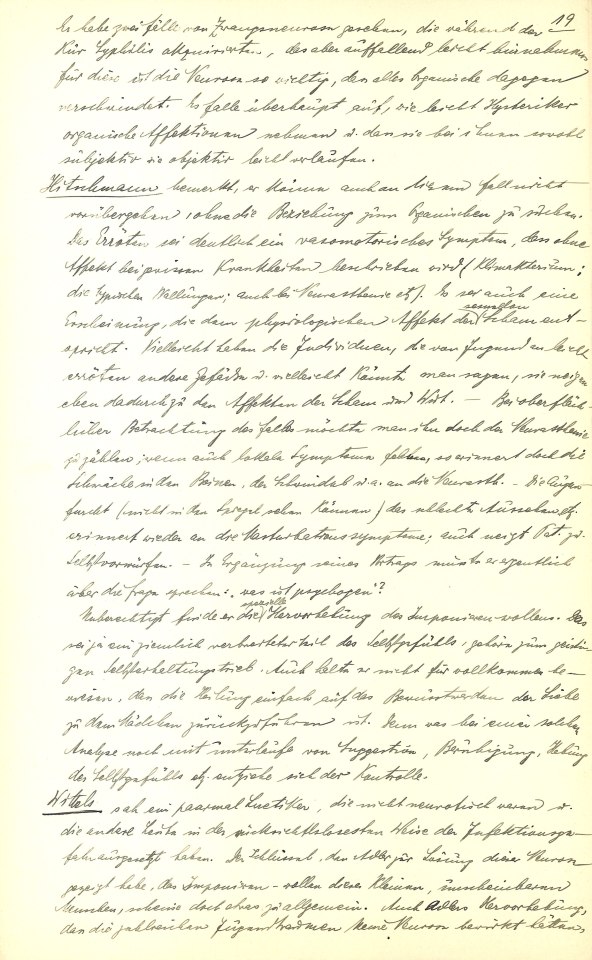 19
Er habe zwei Fälle von Zwangsneurosen gesehen, die während der
Kur Syphilis akquirierten, das aber auffallend leicht hinnahmen
für diese ist die Neurose so wichtig, dass alles Organische dagegen
verschwindet. Es falle überhaupt auf, wie leicht Hysteriker
organische Affektionen nehmen u. dass sie bei ihnen sowohl
subjektiv wie objektiv leicht verlaufen.
Hitschmann bemerkt, er könne auch an diesem Fall nicht
vorübergehen, ohne die Beziehung zum Organischen zu suchen.
Das Erröten sei deutlich ein vasomotorisches Symptom, dass ohne
Affekt bei gewissen Krankheiten beschrieben wird (Klimakterium;
die typischen Wallungen; auch bei Neurasthenie etz). Es sei auch eine
Erscheinung, die dem physiologischen Affekt der sexuellen Scham ent-
spricht. Vielleicht haben die Individuen, die von Jugend an leicht
erröten andere Gefäße u. vielleicht könnte man sagen, sie neigen
eben dadurch zu den Affekten der Scham und Wut. — Bei oberfläch-
licher Betrachtung des Falles möchte man ihn doch der Neurasthenie
zuzählen; wenn auch lokale Symptome fehlen, so erinnert doch die
Schwäche in den Beinen, der Schwindel u.a. an die Neurasth. — Die Augen-
furcht (nicht in den Spiegel sehen können) das schlechte Aussehen etz.
erinnert wieder an die Masturbationssymptome; auch neigt Pat. zu
Selbstvorwürfen. — In Ergänzung seines Vortrags müsste er eigentlich
über die Frage sprechen: "was ist psychogen"?
Unberechtigt finde er die spezielle Hervorhebung des Imponierenwollens. Das
sei ja ein ziemlich verbreiteter Teil des Selbstgefühls, gehöre zum geisti-
gen Selbsterhaltungstrieb. Auch halte er nicht für vollkommen be-
wiesen, dass die Heilung einfach auf das Bewusstwerden der Liebe
zu dem Mädchen zurückzuführen ist. Denn was bei einer solchen
Analyse noch mit unterläuft von Suggestion, Beruhigung, Hebung
des Selbstgefühls etz. entziehe sich der Kontrolle.
Wittels sah ein paarmal Luetiker, die nicht neurotisch waren u.
die andere Leute in der rücksichtslosesten Weise der Infektionsge-
fahr ausgesetzt haben. Der Schlüssel, den Adler zur Lösung dieser Neurose
gezeigt habe, das Imponieren-wollen dieses kleinen, unscheinbaren
Menschen, scheine doch etwas zu allgemein. Auch Adlers Hervorhebung,
dass die zahlreichen Jugendtraumen keine Neurose bewirkt hätten,